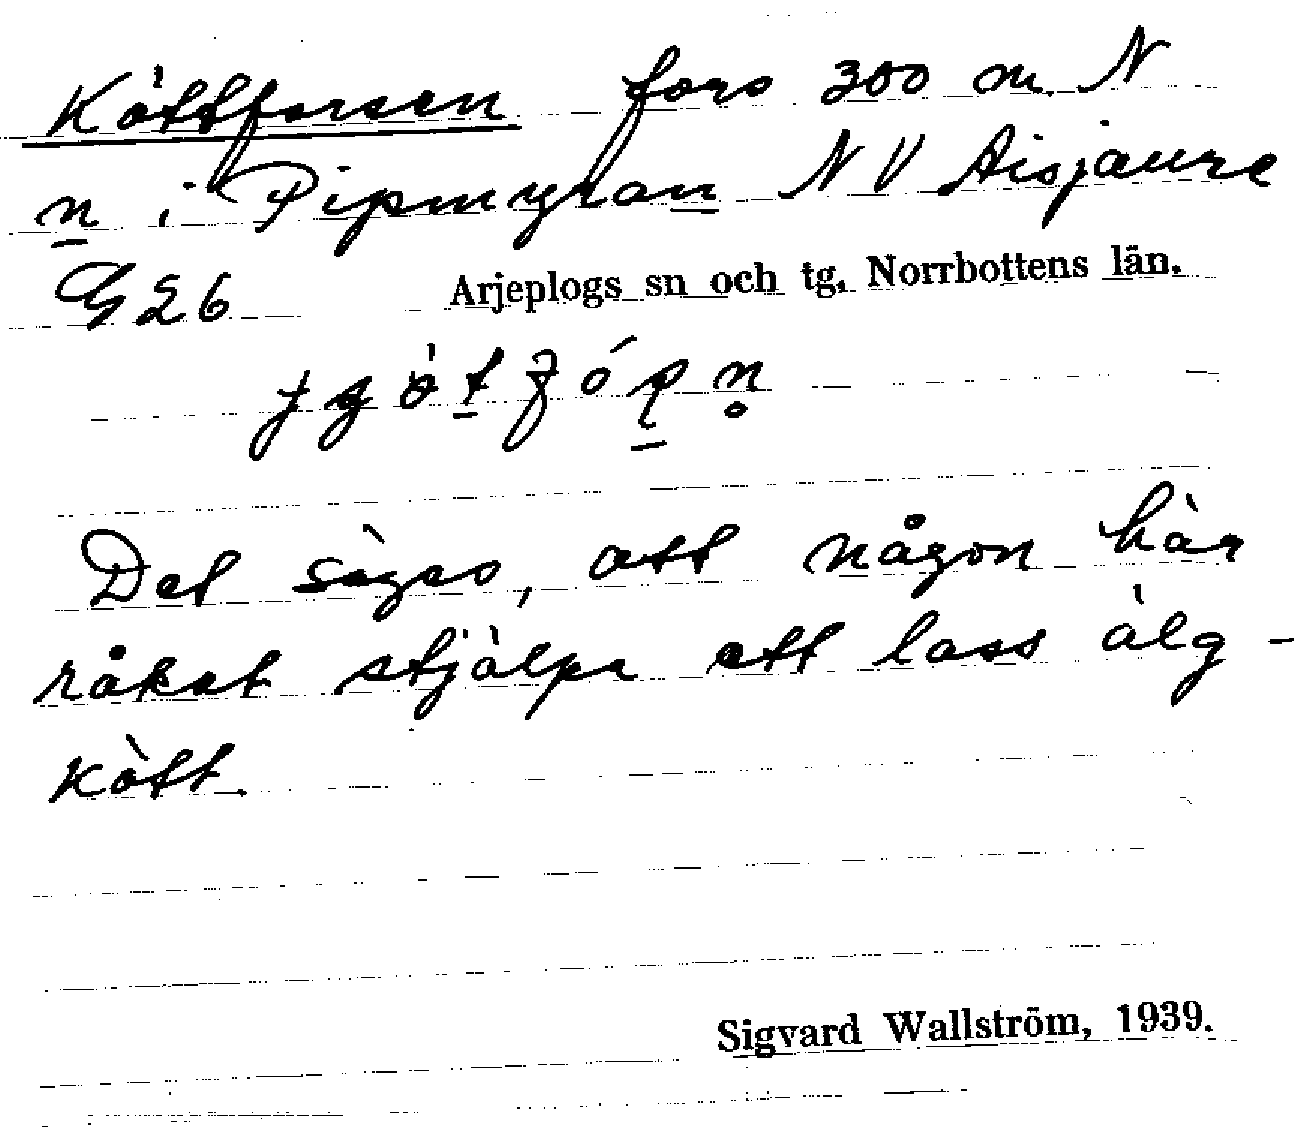 Köttforsen fors 300 m N
n i Pipmyran NV Aisjaure
G 26 Arjeplogs sn och tg, Norrbottens län.
Det säges, att någon här
råkat stjälpa ett lass älg-
kött.
Sigvard Wallström, 1939.